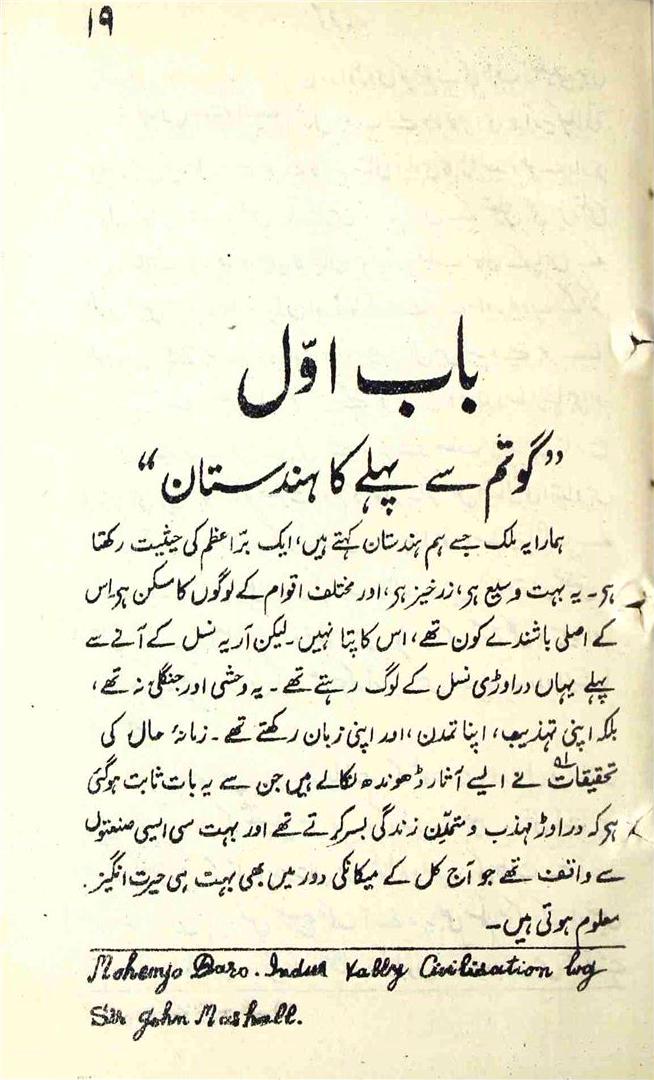 ۱۹
باب اوّل
”گوتم سے پہلے کا ہندستان“
ہمارا یہ ملک جسے ہم ہندستان کہتے ہیں، ایک برِّ اعظم کی حیثیت رکھتا
ہر۔ یہ بہت وسیع ہر، زرخیز ہر، اور مختلف اقوام کے لوگوں کا مسکن ہر۔ اس
کے اصلی باشندے کون تھے، اس کا پتا نہیں۔ لیکن آریہ نسل کے آنے سے
پہلے یہاں دراوڑی نسل کے لوگ رہتے تھے۔ یہ وحشی اور جنگلی نہ تھے،
بلکہ اپنی تہذیب، اپنا تمدن، اور اپنی زبان رکھتے تھے۔ زمانۂ حال کی
تحقیقات نے ایسے آثار ڈھونڈھ نکالے ہیں جن سے یہ بات ثابت ہوگئی
ہر کہ دراوڑ مہذب و متمدّن زندگی بسر کرتے تھے اور بہت سی ایسی صنعتوں
سے واقف تھے جو آج کل کے میکانکی دور میں بھی بہت ہی حیرت انگیز
معلوم ہوتی ہیں۔
Mohenjo Daro. Indus Valley Civilisation by
Sir John Marshall.